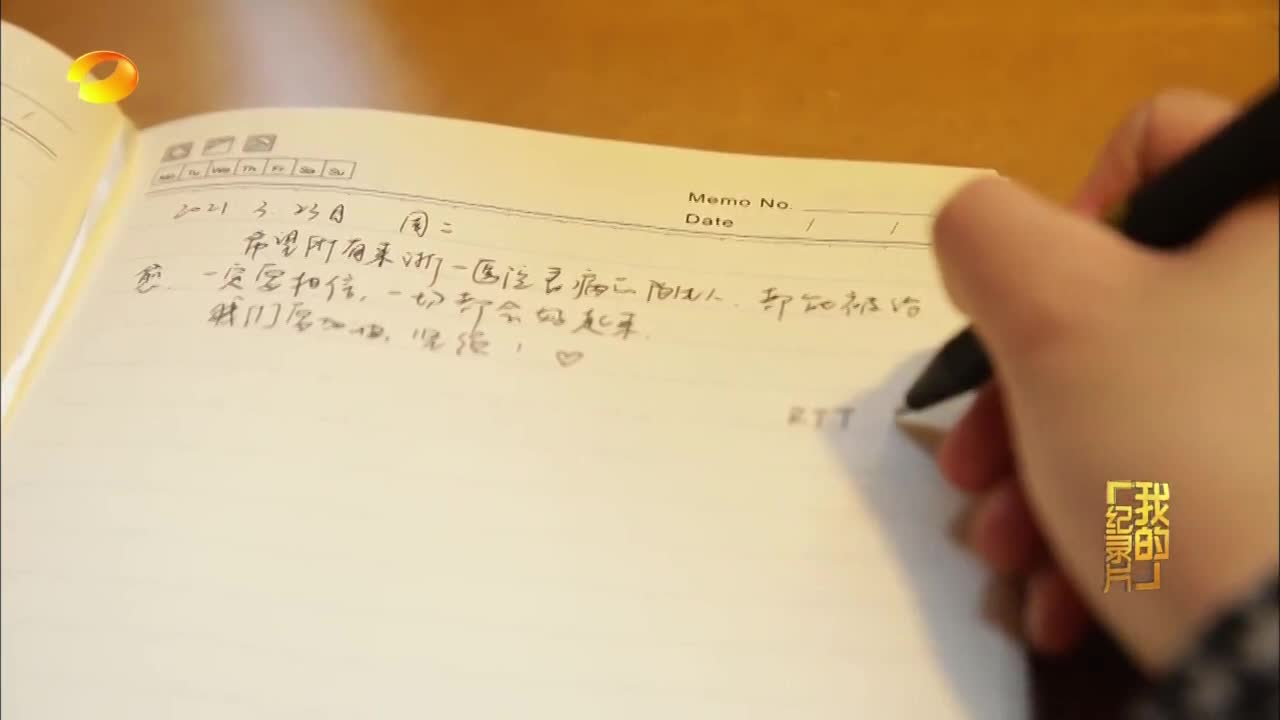 Mo Tu We Th Fr Sa Su
Memo No.
Date / /
2021 3 23日 周二
希望所有来浙一医院看病的陌生人，都能被治
愈，一定要相信，一切都会好起来.
我们要加油，坚强！♡
RTT
我的
「纪录片」